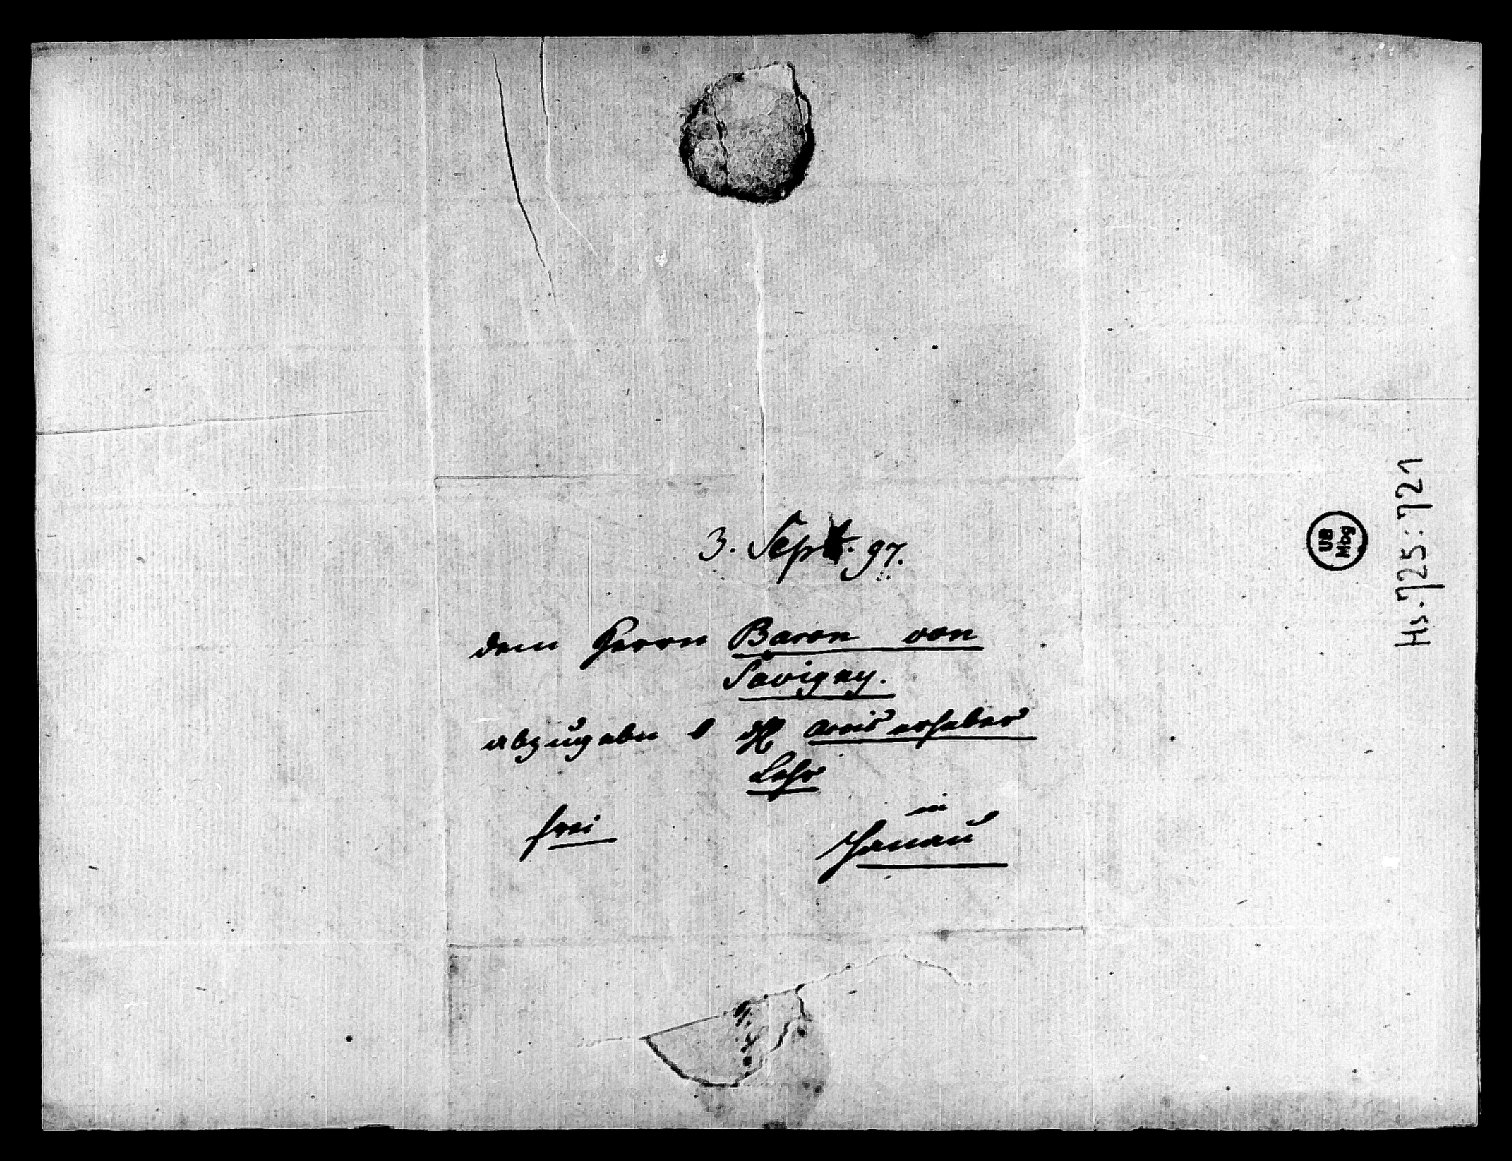 3. Sept. 97.
dem Herrn Baron von
Savigny.
abzugeben
Lehr
frei
in
Hanau
UB
Mbg
Hs. 725:721